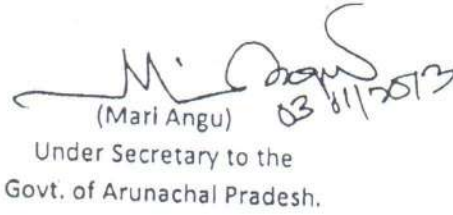 M. Angu
03/01/2013
(Mari Angu)
Under Secretary to the
Govt. of Arunachal Pradesh.